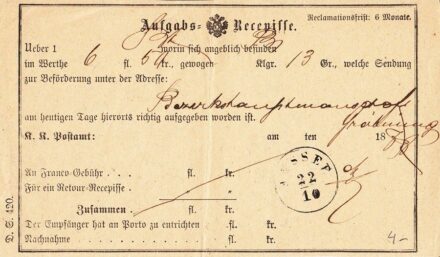 Reclamationsfrist: 6 Monate.
Aufgabs- Recepisse.
Ueber 1 worin sich angeblich befinden
im Werthe 6 fl. 54 kr., gewogen Klgr. 13 Gr., welche Sendung
zur Beförderung unter der Adresse:
Bezirkshauptmannschaft
am heutigen Tage hierorts richtig aufgegeben worden ist.
Gröbming
K. K. Postamt: am ten 18
An Franco-Gebühr fl. kr.
Für ein Retour-Recepisse fl. kr.
Zusammen fl. kr.
Der Empfänger hat an Porto zu entrichten fl. kr.
Nachnahme fl. kr.
AUSSEE
22
10
D. S. 420.
4-